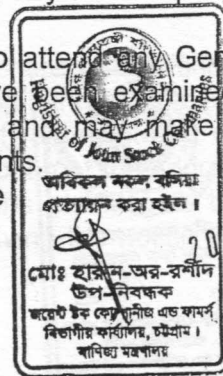 o attend any Gen
ve been examine
and may make
nts.
e
Registrar of Joint Stock Companies
অবিকল নকল, বলিয়া
প্রত্যায়ন করা হইল।
20
মোঃ হারুন-অর-রশীদ
উপ-নিবন্ধক
জয়েন্ট ষ্টক কোম্পানীজ এন্ড ফার্মস
বিভাগীয় কার্যালয়, চট্টগ্রাম।
বাণিজ্য মন্ত্রণালয়